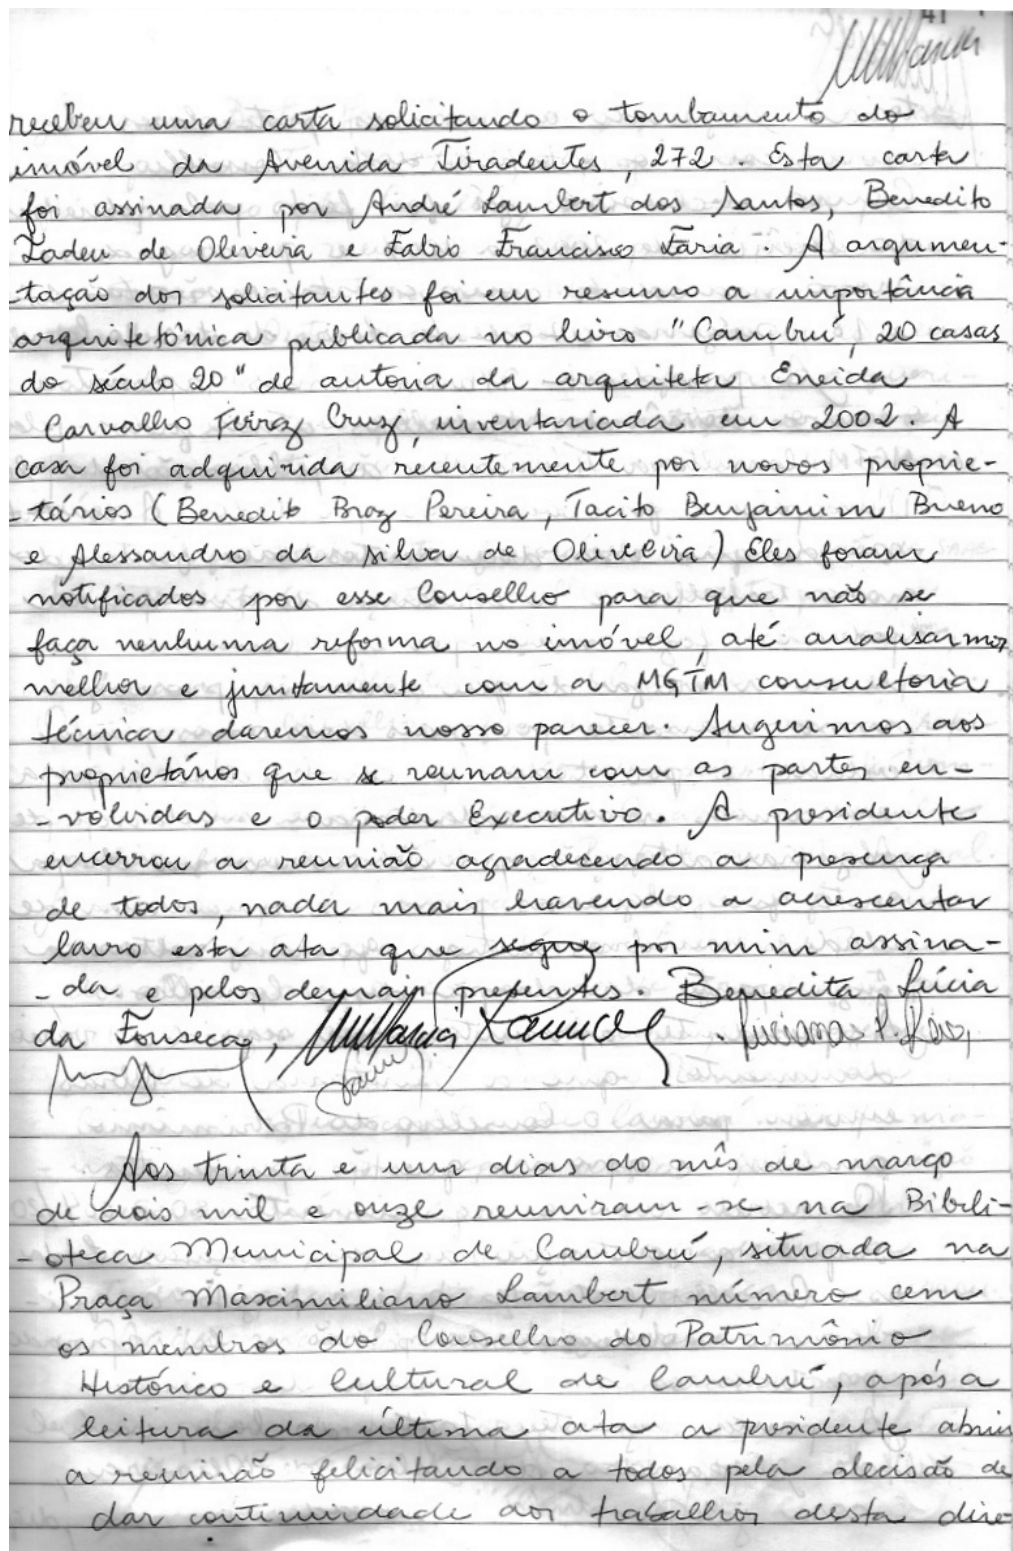 41
recebeu uma carta solicitando o tombamento do
imóvel da Avenida Tiradentes, 272. Esta carta
foi assinada por André Lambert dos Santos, Benedito
Tadeu de Oliveira e Fabio Francisco Faria. A argumen-
-tação dos solicitantes foi em resumo a importância
arquitetônica publicada no livro "Cambuí, 20 casas
do século 20" de autoria da arquiteta Eneida
Carvalho Ferraz Cruz, inventariada em 2002. A
casa foi adquirida recentemente por novos proprie-
-tários (Benedito Braz Pereira, Tacito Benjamim Bueno
e Alessandro da Silva de Oliveira) Eles foram
notificados por esse Conselho para que não se
faça nenhuma reforma no imóvel, até analisarmos
melhor e juntamente com a MGTM consultoria
técnica daremos nosso parecer. Sugerimos aos
proprietários que se reunam com as partes en-
-volvidas e o poder Executivo. A presidente
encerrou a reunião agradecendo a presença
de todos, nada mais havendo a acrescentar
lavro esta ata que segue por mim assina-
-da e pelos demais presentes. Benedita Lúcia
da Fonseca,
Aos trinta e um dias do mês de março
de dois mil e onze reuniram-se na Bibli-
-oteca Municipal de Cambuí, situada na
Praça Maximiliano Lambert número cem
os membros do Conselho do Patrimônio
Histórico e Cultural de Cambuí, após a
leitura da última ata a presidente abriu
a reunião felicitando a todos pela decisão de
dar continuidade aos trabalhos desta dire-